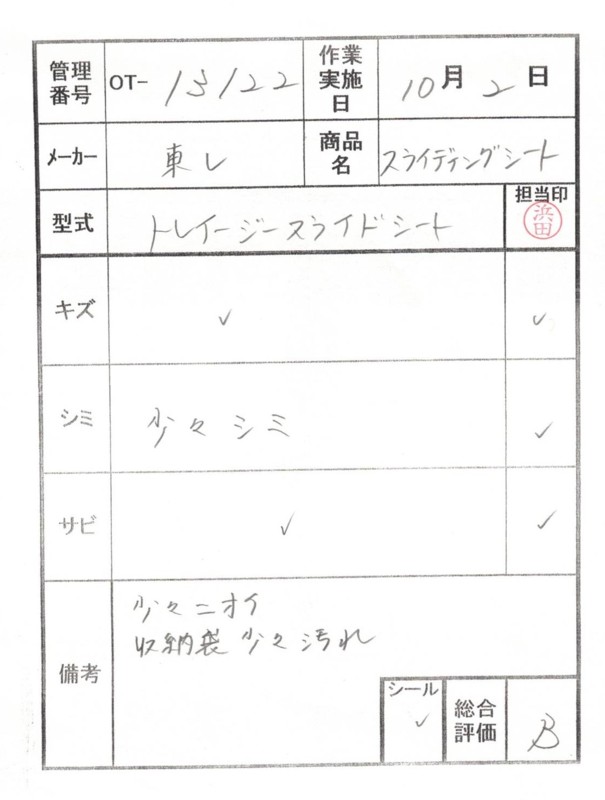 管理番号 OT- 13122 作業実施日 10月2日
メーカー 東レ 商品名 スライディングシート
型式 トレイージースライドシート 担当印 浜田
キズ ✓ ✓
シミ 少々シミ ✓
サビ ✓ ✓
備考 少々ニオイ
収納袋少々汚れ
シール ✓ 総合評価 B